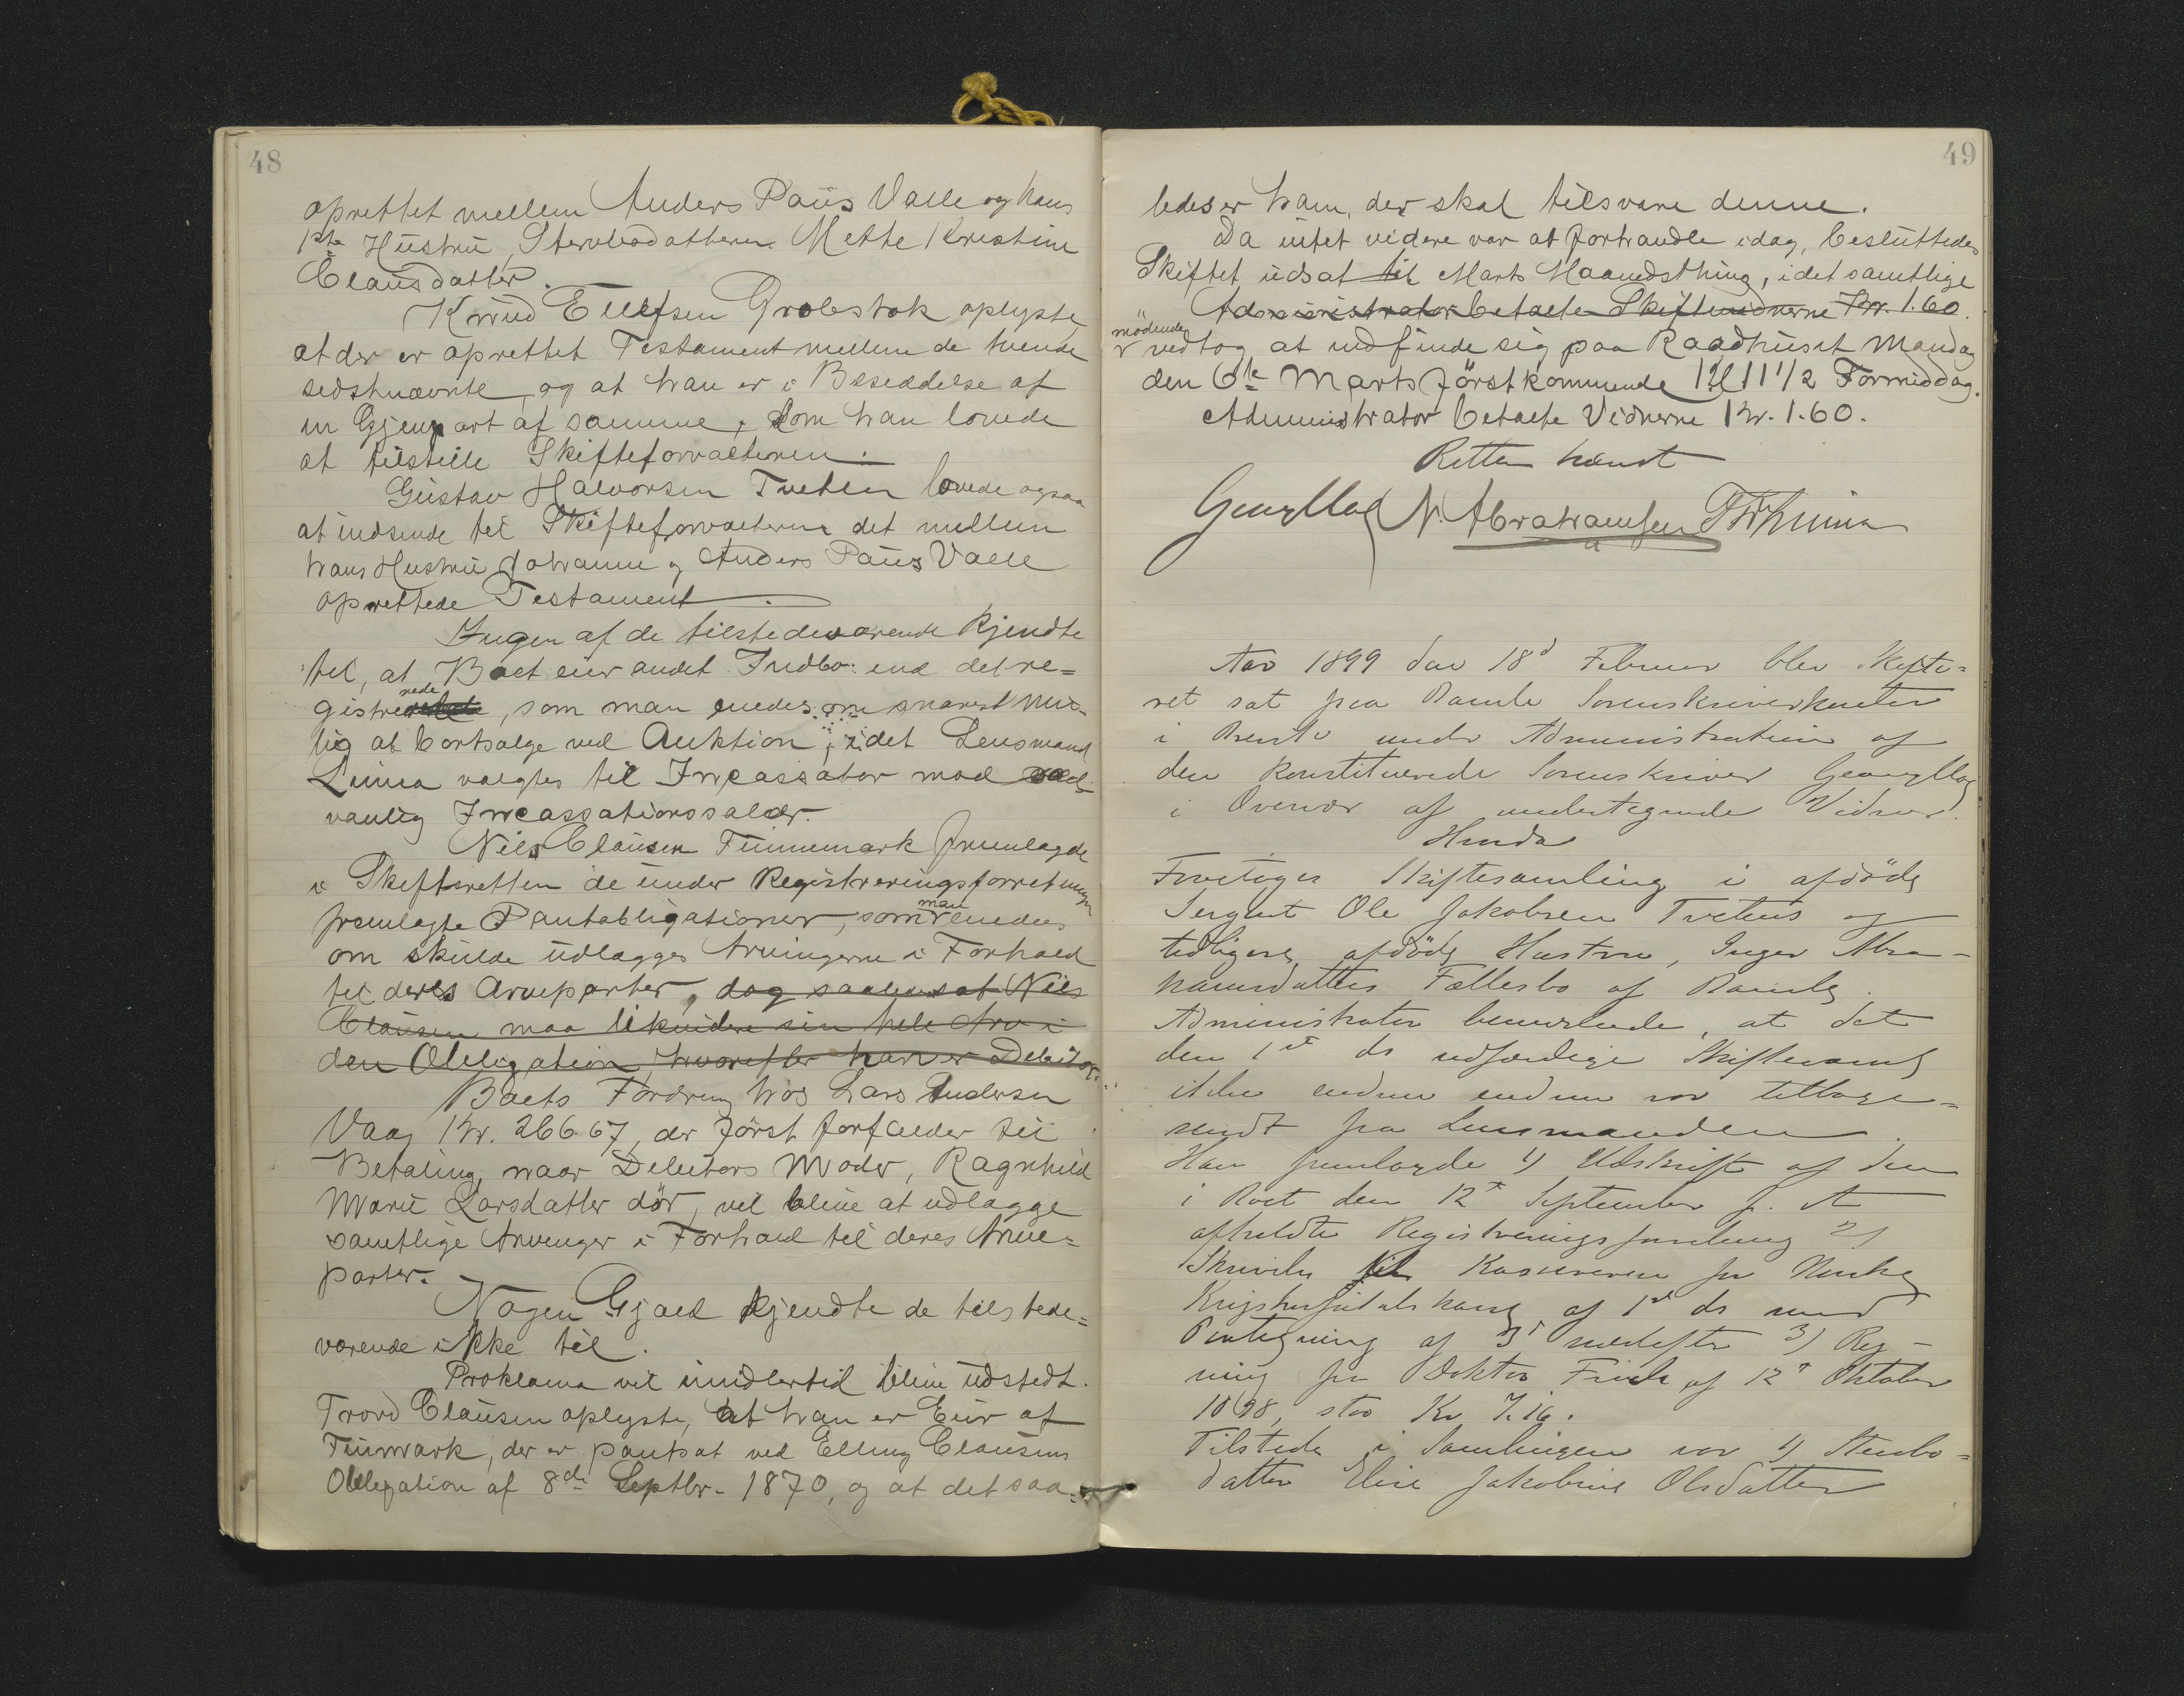 48
oprettet mellem Anders Paus Valle og hans
1ste Hustru, Stervbodatteren Mette Kirstine
Clausdatter.
Knud Ellefsen Grobstok oplyste,
at der er oprettet Testament mellem de tvende
sidstnævnte, og at han er i Besiddelse af
en Gjenpart af samme, som han lovede
at tilstille Skifteforvalteren.
Gustav Halvorsen Tveten lovede ogsaa
at indsende til Skifteforvalteren det mellem
hans Hustru Johanne og Anders Paus Valle
oprettede Testament.
Ingen af de tilstedeværende kjendte
til, at Boet eier andet Indbo end det re=
gistrerede, som man enedes om snarest mu=
lig at bortsælge ved Auktion, idet Lensmand
Linna valgtes til Incassator mod
vanlig Incassationssalær.
Niels Clausen Finnemark fremlagde
i Skifteretten de under Registreringsforretningen
fremlagte Pantobligationer, som man enedes
om skulde udlægges Arvingerne i Forhold
til deres Arveparter, dog saaledes at Niels
Clausen maa likvidere sin hele Arv i
den Obligation, hvorefter han er Debitor.
Boets Fordring hos Lars Andersen
Vaag Kr. 266.67, der først forfalder til
Betaling, naar Debitors Moder, Ragnhild
Marie Larsdatter dör, vil blive at udlægge
samtlige Arvinger i Forhold til deres Arve=
parter.
Nogen Gjæld kjendte de tilstede=
værende ikke til.
Proklama vil imidlertid blive udstedt.
Trovd Clausen oplyste, at han er Eier af
Finmark, der er pantsat ved Elling Clausens
Obligation af 8de Septbr. 1870, og at det saa=
49
ledes er ham, der skal tilsvare denne.
Da intet videre var at forhandle idag, besluttedes
Skiftet udsat til Marts Maanedsthing, idet samtlige
Administrator betalte Skiftevidnerne Kr. 1.60.
mödende
vedtog at indfinde sig paa Raadhuset Mandag
den 6te Marts förstkommende Kl 11 1/2 Formiddag.
Administrator betalte Vidnerne Kr. 1.60.
Retten hævet
N. Abrahamsen
Aar 1899 den 18d Februar blev Skifte=
ret sat paa Bamle Sorenskriverkontor
i under Administration af
den konstituerede Sorenskriver
i Overvær af undertegnede Vidner.
Hvorda
Foretoges Skiftesamling i afdöde
Sergeant Ole Jakobsen Tvetens og
tidligere afdöde Hustru, Inger Abra-
hamsdatters Fællesbo af Bamle.
Administrator bemærkede, at det
den 1ste ds udfærdigede Skiftevarsel
ikke endnu endnu var tilbage=
sendt fra Lensmanden.
Han fremlagde 1) Udskrift af den
i Boet den 12te September f. A
afholdte Registreringsforretning 2)
Skrivelse til Kassereren for Norske
Krigshospitalskasse af 1ste ds med
Paategning af 3die næstefter 3) Reg-
ning fra Doktor af 12te Oktober
1898, stor Kr 7.16.
Tilstede i Samlingen var 1) Stervbo=
datter Elise Jakobine Olsdatter